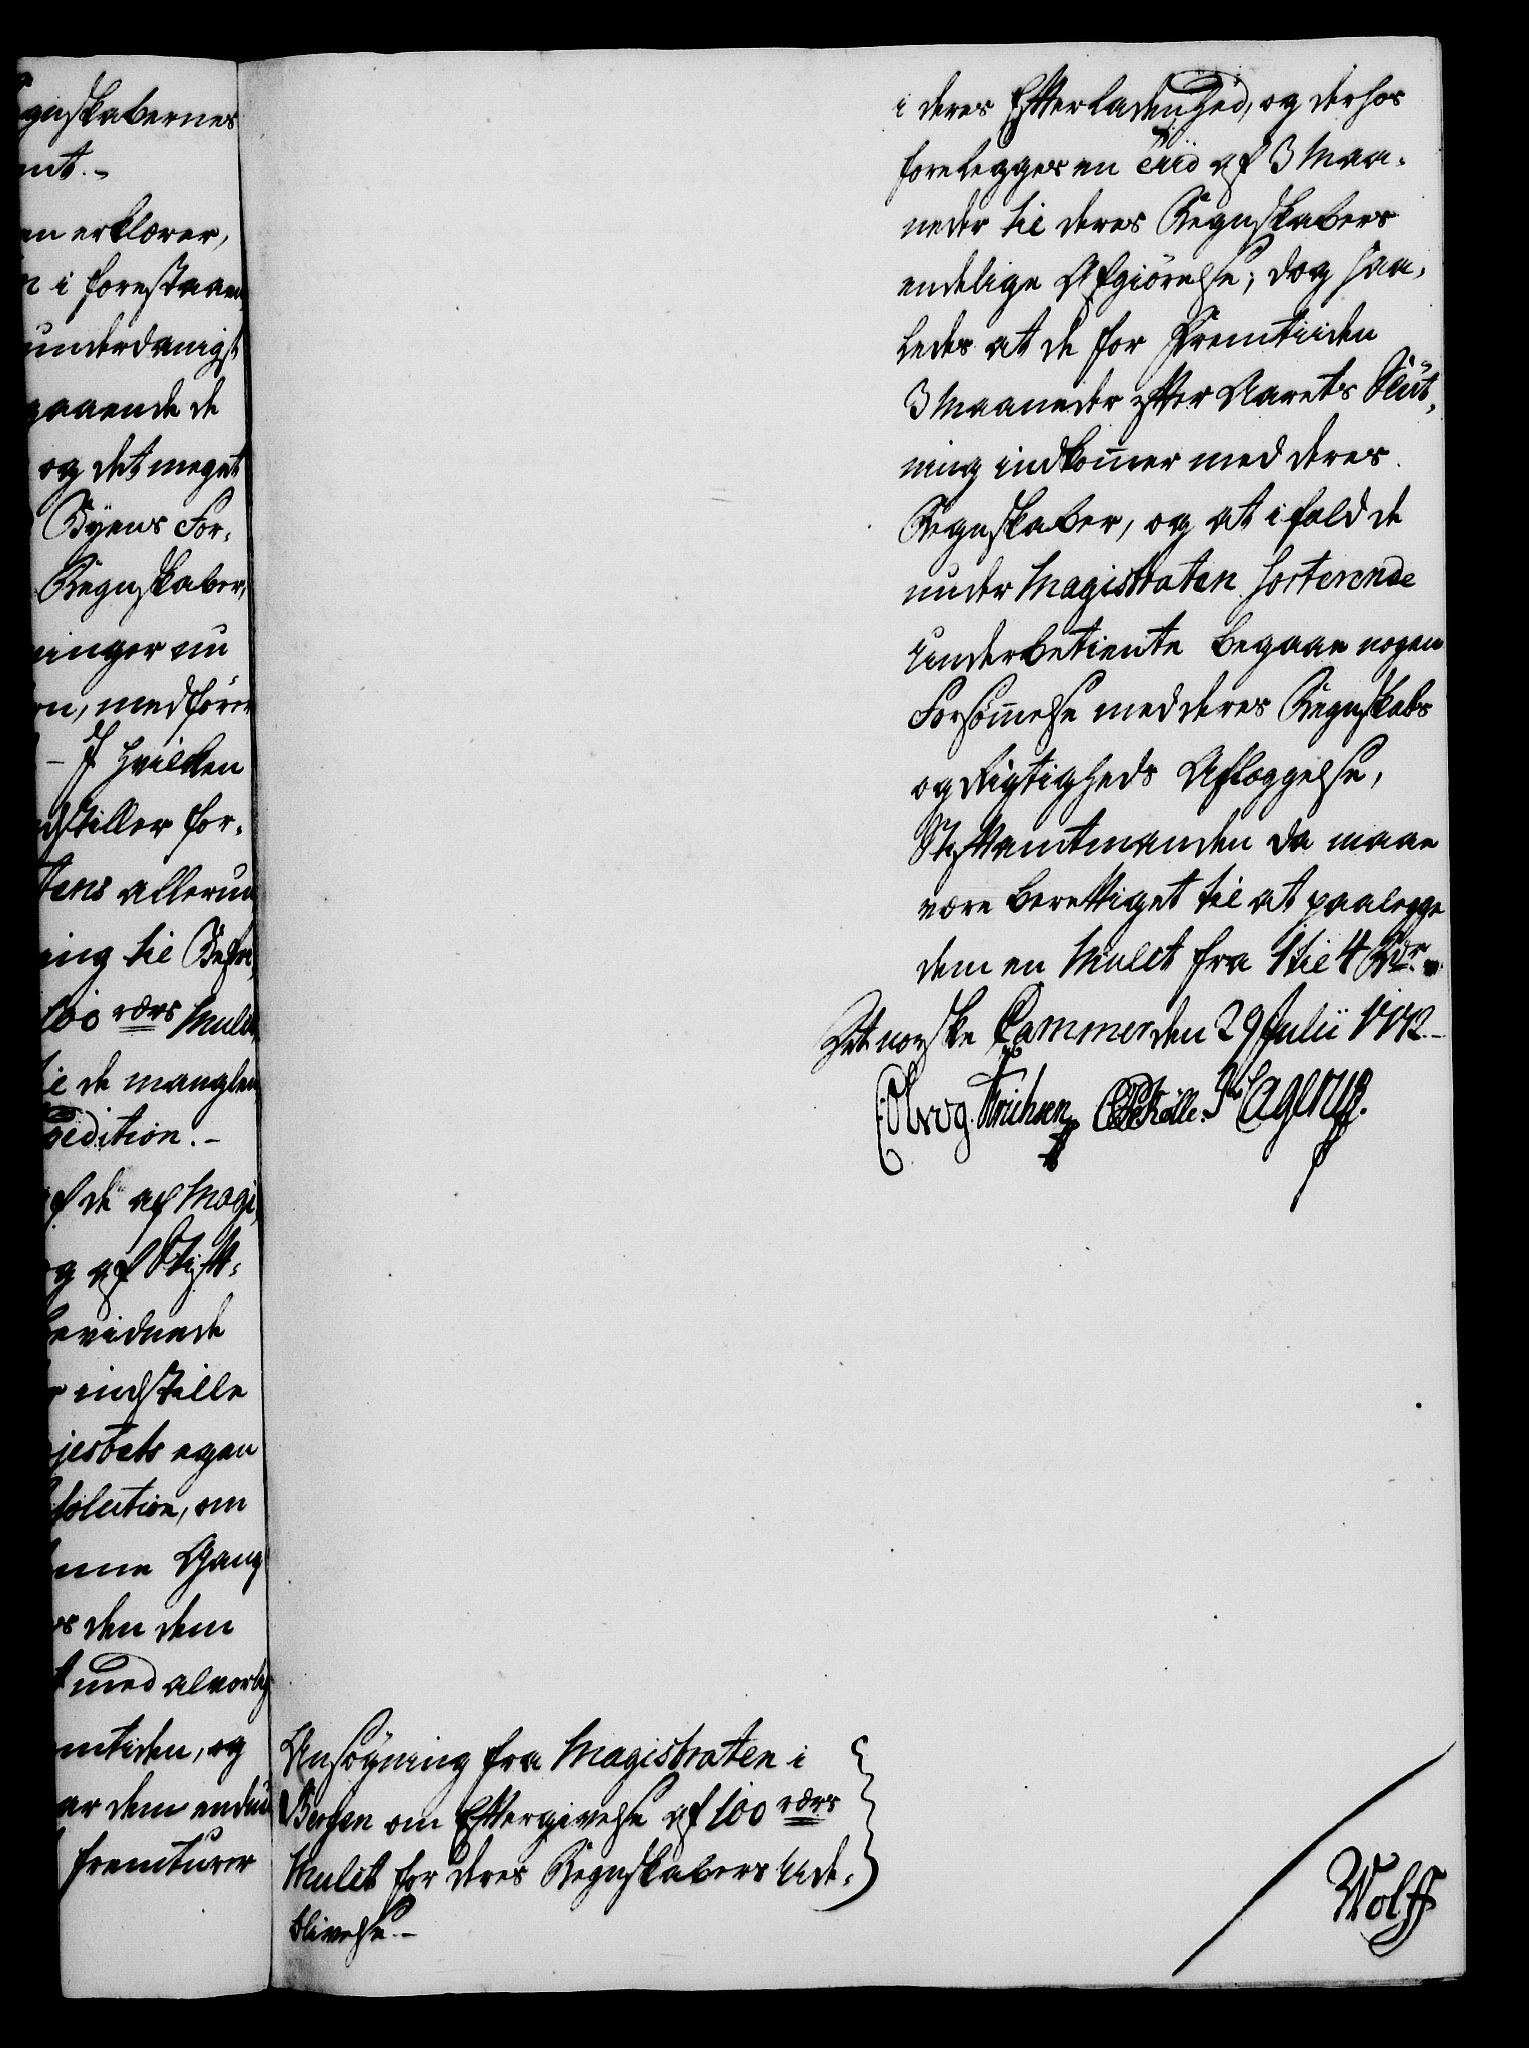 gnskabernes
nt.-
en erklærer,
i forestaaen
underdanigst
gaaende de
og det meget
Byens For-
Regnskaber,
ninger nu
on, medfører
- I hvilken
dstiller for-
tens allerun
ing til Befri
100 rdrs Mulct
de manglen
pedition.-
f de af Magi,
g af Stift-
bevidnede
indstille
jestets egen
solution, om
enne Gang
den dem
med alvorlig
mtiden, og
ar dem endnu
fremturer
i deres Efterladenhed, og derhos
forelegges en Tiid af 3 Maa-
neder til deres Regnskabers
endelige Afgiörelse; dog saa-
ledes at de for Fremtiiden
3 Maaneder efter Aarets Slut-
ning indkommer med deres
Regnskaber, og at ifald de
under Magistraten sorterende
Underbetiente begaae nogen
Forsömmelse med deres Regnskabs
og Rigtigheds Aflæggelse,
Stiftamtmanden da maae
være berettiget til at paalegge
dem en Mulct fra 1 til 4 Rdr.
Det norske Cammer den 29 Julii 1772.-
Holle.
Ansøgning fra Magistraten i
Bergen om Eftergivelse af 100 rdrs
Mulct for deres Regnskabers Ude-
blivelse.-
Wolff